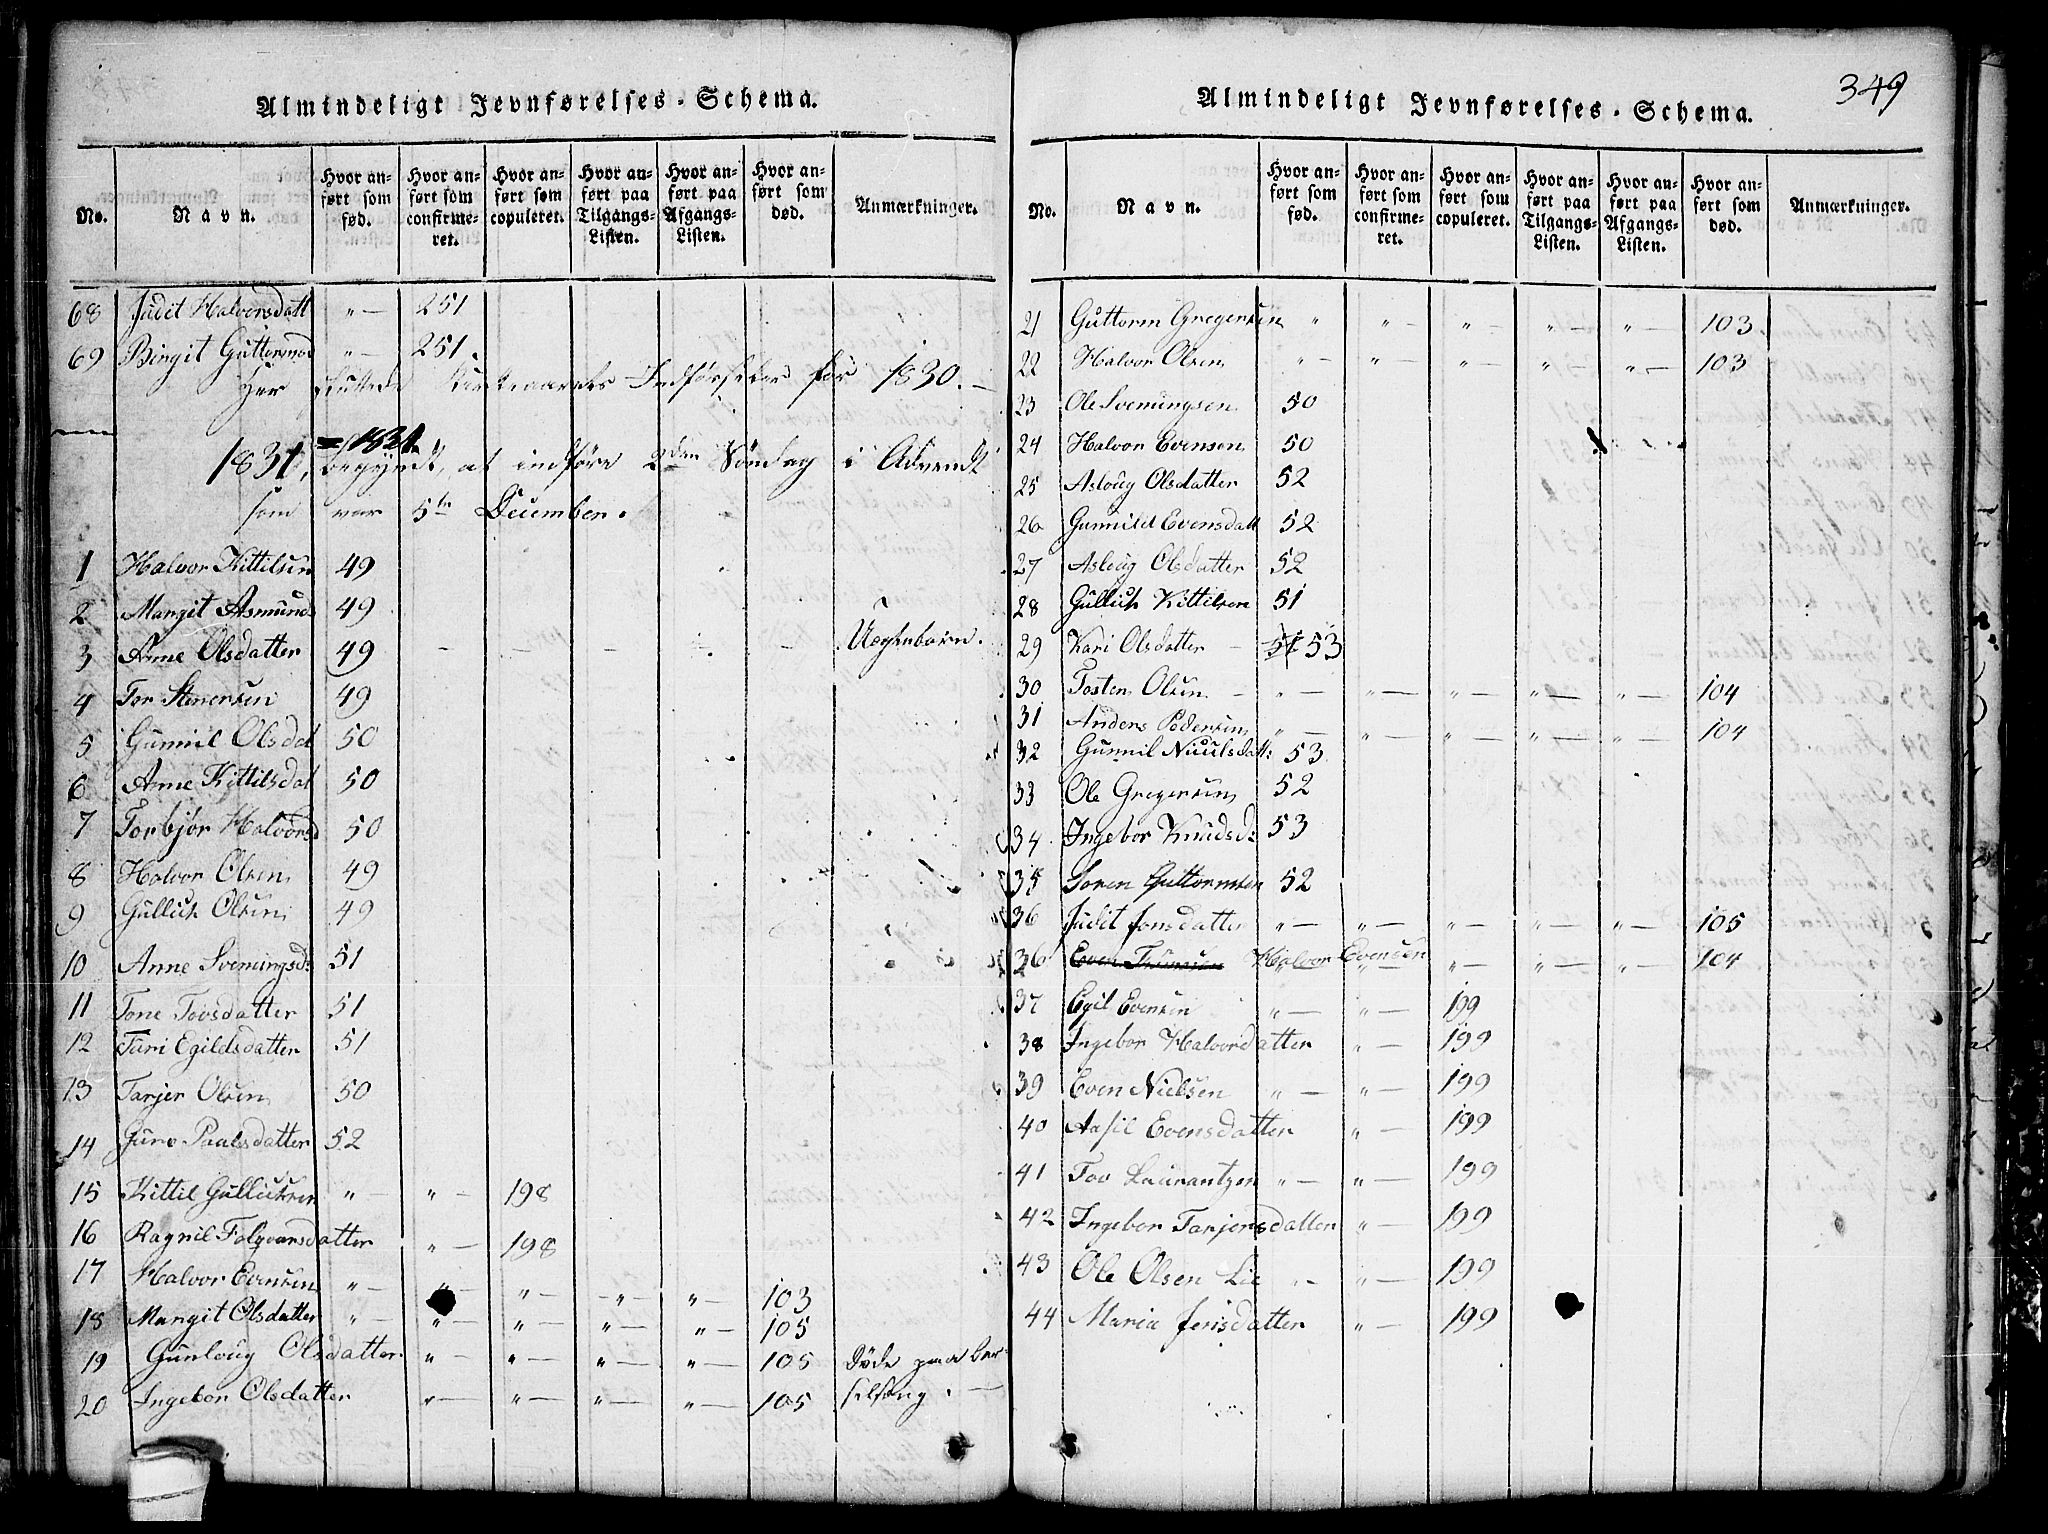 Almindeligt Jevnførelses-Schema.
No. Navn. Hvor anført som fød. Hvor anført som confirmeret. Hvor anført som copuleret. Hvor anført paa Tilgangs-Listen. Hvor anført paa Afgangs-Listen. Hvor anført som død. Anmærkninger.
68 Judit Halvorsdatt " — 251
69 Birgit Guttormsd " — 251.
Her sluttede Kirkeaarets Indførseler for 1830. —
= 1831
1831, begyndt, at indføre 2den Søndag i Advendt
som var 5te December.
1 Halvor Kittilsen 49
2 Margit Asmunds 49
3 Anne Olsdatter 49 — — — — — Uægtebarn.
4 Tor Stenersen 49
5 Gunnil Olsdat 50
6 Anne Kittilsdat 50
7 Torbjør Halvorsd 50
8 Halvor Olsen 49
9 Gullich Olsen 49
10 Anne Svenungsd: 51
11 Tone Tovsdatter 51
12 Turi Egildsdatter 51
13 Tarjer Olsen 50
14 Guro Paalsdatter 52
15 Kittil Gullichsen " — " — 198
16 Ragnil Folqvarsdatter " — 198
17 Halvor Evensen " — " — " — " — " — 103
18 Margit Olsdatter " — " — " — " — " — 105
19 Gunloug Olsdatter. " — " — " — " — 105 Døde paa Bar-
20 Ingebor Olsdatter " — " — " — " — 105 selseng. —
349
Almindeligt Jevnførelses-Schema.
No. Navn. Hvor anført som fød. Hvor anført som confirmeret. Hvor anført som copuleret. Hvor anført paa Tilgangs-Listen. Hvor anført paa Afgangs-Listen. Hvor anført som død. Anmærkninger.
21 Guttorm Gregersen " " — " — " — " — 103.
22 Halvor Olsen " — " — " — " — " — 103
23 Ole Svenungsen 50
24 Halvor Evensen 50
25 Asloug Olsdatter 52
26 Gunnild Evensdatt 52
27 Asloug Olsdatter 52
28 Gullich Kittilsen 51
29 Kari Olsdatter — 51 53
30 Tosten Olsen — " — " — " — " — " — 104
31 Anders Pedersen " — " — " — " — " — 104
32 Gunnil Niculsdatt: 53
33 Ole Gregersen 52
34 Ingebor Knudsd: 53
35 Soren Guttormsen 52
36 Judit Jonsdatter " — " — " — " — " — 105
36 Even Halvor Evensen " — " — " — " — " — 104
37 Egil Evensen " — " — 199
38 Ingebor Halvorsdatter " — 199
39 Even Nielsen " — " — 199
40 Aasil Evensdatter " — 199
41 Tov Laurantzen " — " — 199
42 Ingebor Tarjersdatter " — 199
43 Ole Olsen Lie " — " — 199
44 Maria Jensdatter " — 199